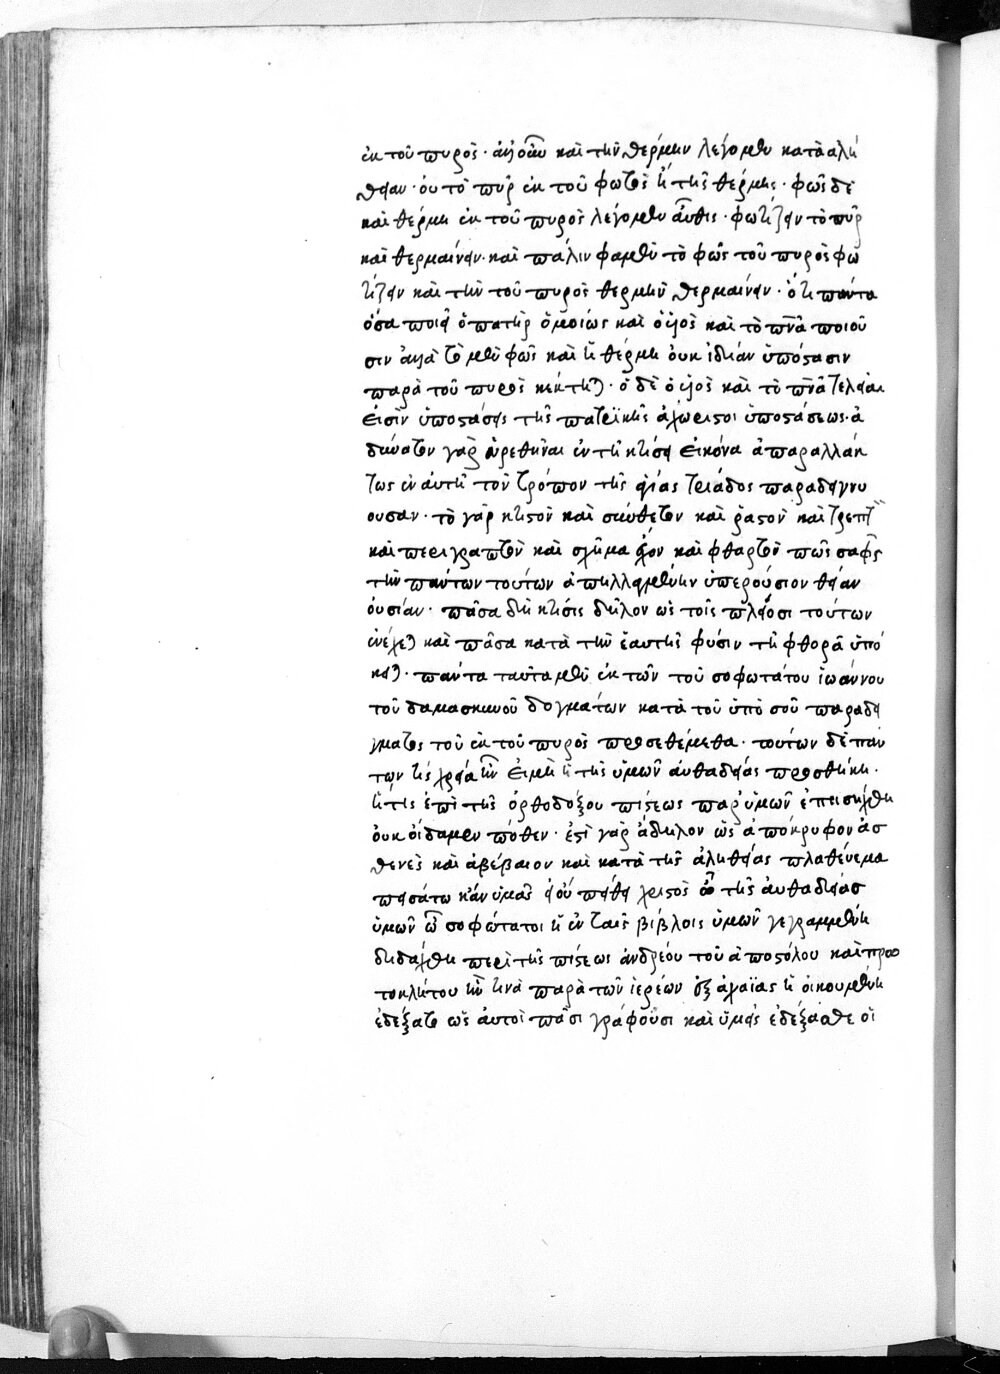 ἐκ τοῦ πυρὸς· καὶ τὴν θέρμην λέγομεν κατὰ ἀλή
θειαν· οὐ τὸ πῦρ ἐκ τοῦ φωτὸς ἢ τῆς θέρμης· φῶς δὲ
καὶ θέρμη ἐκ τοῦ πυρὸς λέγομεν αὖθις· φωτίζειν τὸ πῦρ
καὶ θερμαίνειν· καὶ πάλιν φαμὲν τὸ φῶς τοῦ πυρὸς φω
τίζειν καὶ τὴν τοῦ πυρὸς θερμὴν θερμαίνειν· ὅτι πάντα
ὅσα ποιεῖ ὁ πατὴρ ὁμοίως καὶ ὁ υἱὸς καὶ τὸ πνᾶ ποιοῦ
σιν ἀλλὰ τὸ μὲν φῶς καὶ ἡ θέρμη οὐκ ἰδίαν ὑπόστασιν
παρὰ τοῦ πυρὸς κέκτηται· ὁ δὲ ὁ υἱὸς καὶ τὸ πνᾶ τέλειαι
εἰσὶν ὑποστάσεις τῆς πατρϊκῆς ἀχώριστοι ὑποστάσεως· ἀ
δύνατον γὰρ εὑρεθῆναι ἐν τῇ κτίσει εἰκόνα ἀπαραλλάκ
τως ἐν αὐτῇ τὸν τρόπον τῆς ἁγίας τριάδος παραδεικνυ
ουσαν· τὸ γὰρ κτιστὸν καὶ σύνθετον καὶ ῥαστὸν καὶ τρεπτὸν
καὶ περιγραπτὸν καὶ σχῆμα ἔχον καὶ φθαρτὸν πῶς σαφῶς
τὴν πάντων τούτων ἀπηλλαγμένην ὑπερούσιον θείαν
οὐσίαν· πᾶσα δὴ κτίσις δῆλον ὡς τοῖς πλείοσι τούτων
ἐνέχεται καὶ πᾶσα κατὰ τὴν ἑαυτῆς φύσιν τῇ φθορᾷ ὑπό
κειται· πάντα ταῦτα μὲν ἐκ τῶν τοῦ σοφωτάτου ἰωάννου
τοῦ δαμασκηνοῦ δογμάτων κατὰ τοῦ ὑπὸ σοῦ παραδεί
γματος τοῦ ἐκ τοῦ πυρὸς προσεθέμεθα· τούτων δὲ πάν
των τίς χρεία ἦν εἰ μὴ ἡ τῆς ὑμῶν αὐθαδείας προσθήκη·
ἥτις ἐπὶ τῆς ὀρθοδόξου πίστεως παρ' ὑμῶν ἐπεισήχθη
οὐκ οἴδαμεν πόθεν· ἐστὶ γὰρ ἄδηλον ὡς ἀπόκρυφον ἀσ
θενὲς καὶ ἀβέβαιον καὶ κατὰ τῆς ἀληθείας πλαθέν
πεισάτω κἂν ὑμᾶς χριστὸς τῆς αὐθαδείασ
ὑμῶν ὦ σοφώτατοι ἡ ἐν ταῖς βίβλοις ὑμῶν γεγραμμένη
διδαχθῆ περὶ τῆς πίστεως ἀνδρέου τοῦ ἀποστόλου καὶ πρω
τοκλήτου ἣν τινὰ παρὰ τῶν ἱερέων ἐξ ἀχαΐας ἡ οἰκουμένη
ἐδέξατο ὡς αὐτοὶ πᾶσι γράφουσι καὶ ὑμεῖς ἐδέξασθε οἱ